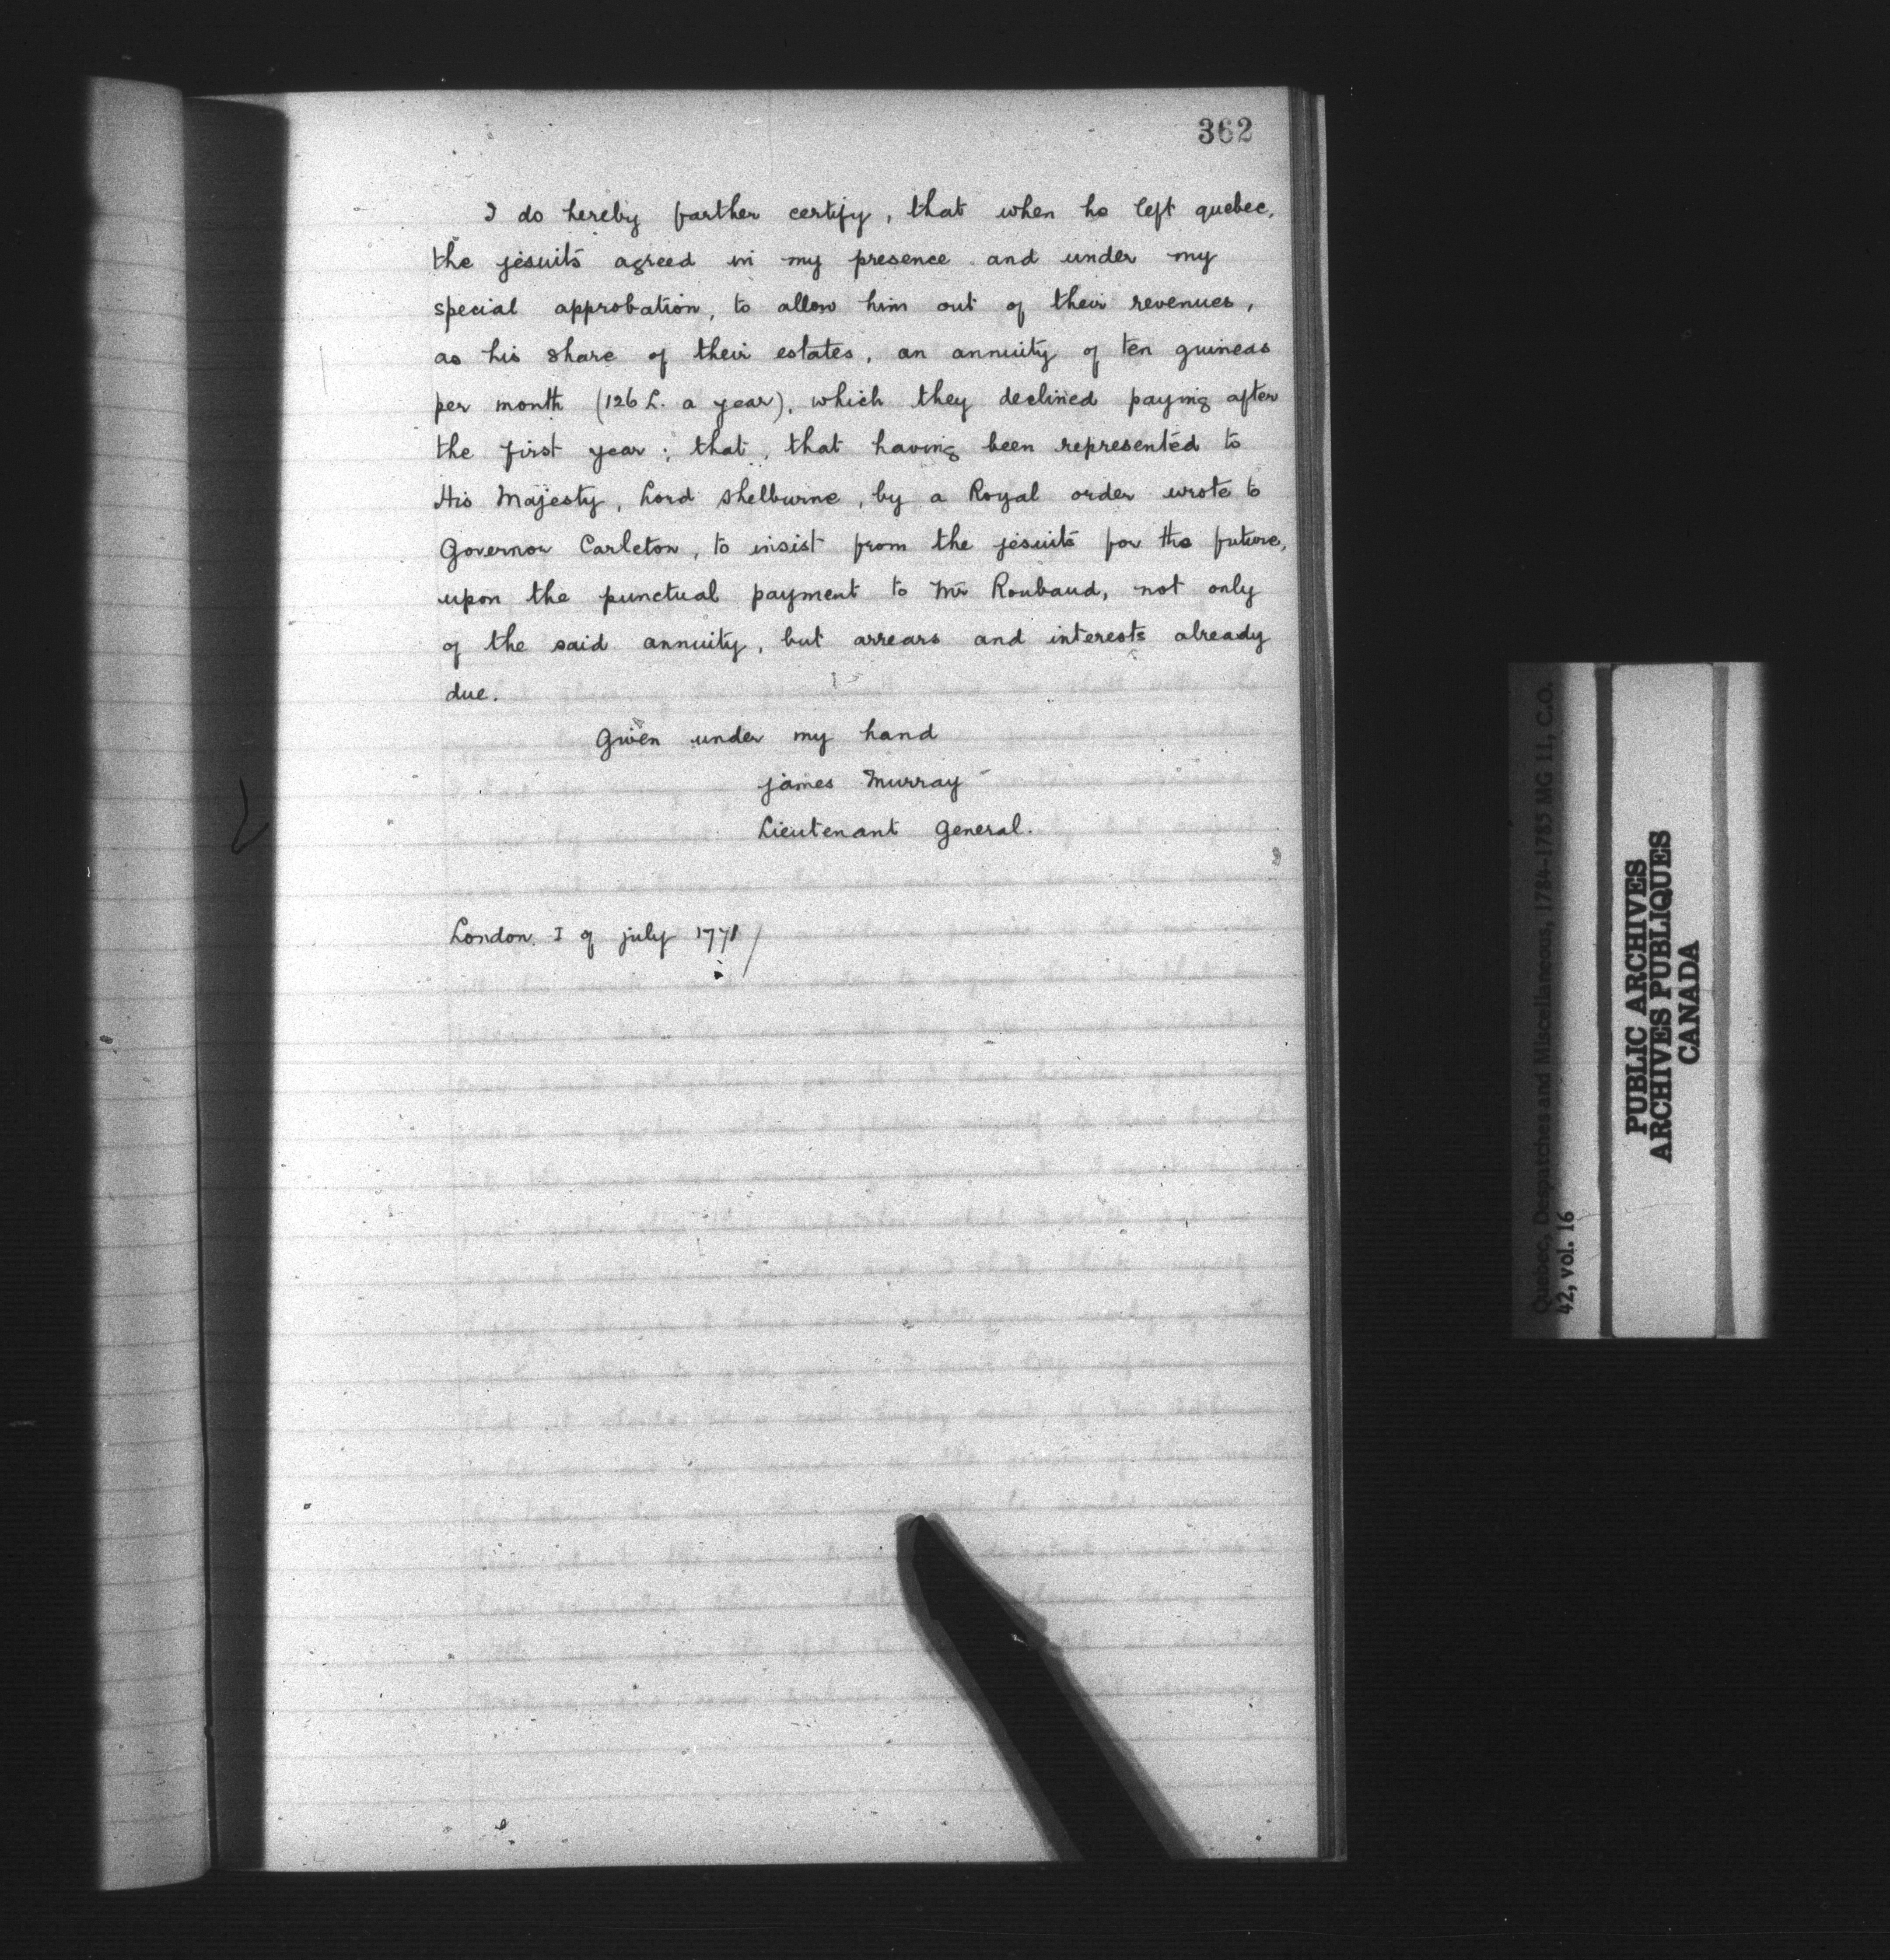 362
I do hereby farther certify, that when he left quebec,
the jesuits agreed in my presence and under my
special approbation, to allow him out of their revenues,
as his share of their estates, an annuity of ten guineas
per month (126 L. a year), which they declined paying after
the first year; that, that having been represented to
His Majesty, Lord Shelburne, by a Royal order wrote to
Governor Carleton, to insist from the jesuits for the future,
upon the punctual payment to Mr Roubaud, not only
of the said annuity, but arrears and interests already
due.
Given under my hand
james Murray
Lieutenant General.
London, I of july 1771
Quebec, Despatches and Miscellaneous, 1784-1785 MG 11, C.O.
42, vol. 16
PUBLIC ARCHIVES
ARCHIVES PUBLIQUES
CANADA